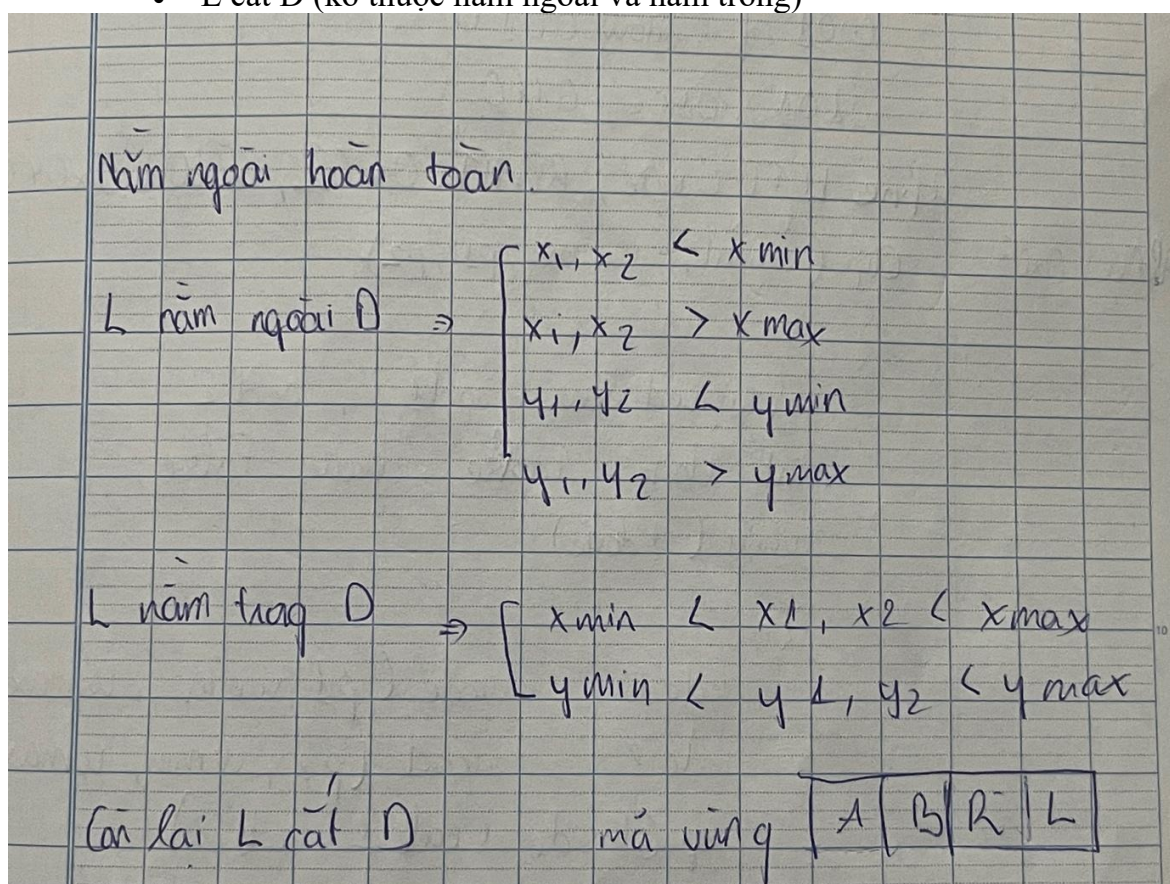 L cắt D (ko thuộc nằm ngoài và nằm trong)
Nằm ngoài hoàn toàn.
x1, x2 < x min
L nằm ngoài D => x1, x2 > x max
y1, y2 < y min
y1, y2 > y max
L nằm trog D => xmin < x1, x2 < xmax
y min < y1, y2 < y max
Còn lại L cắt D mã vùng A B R L